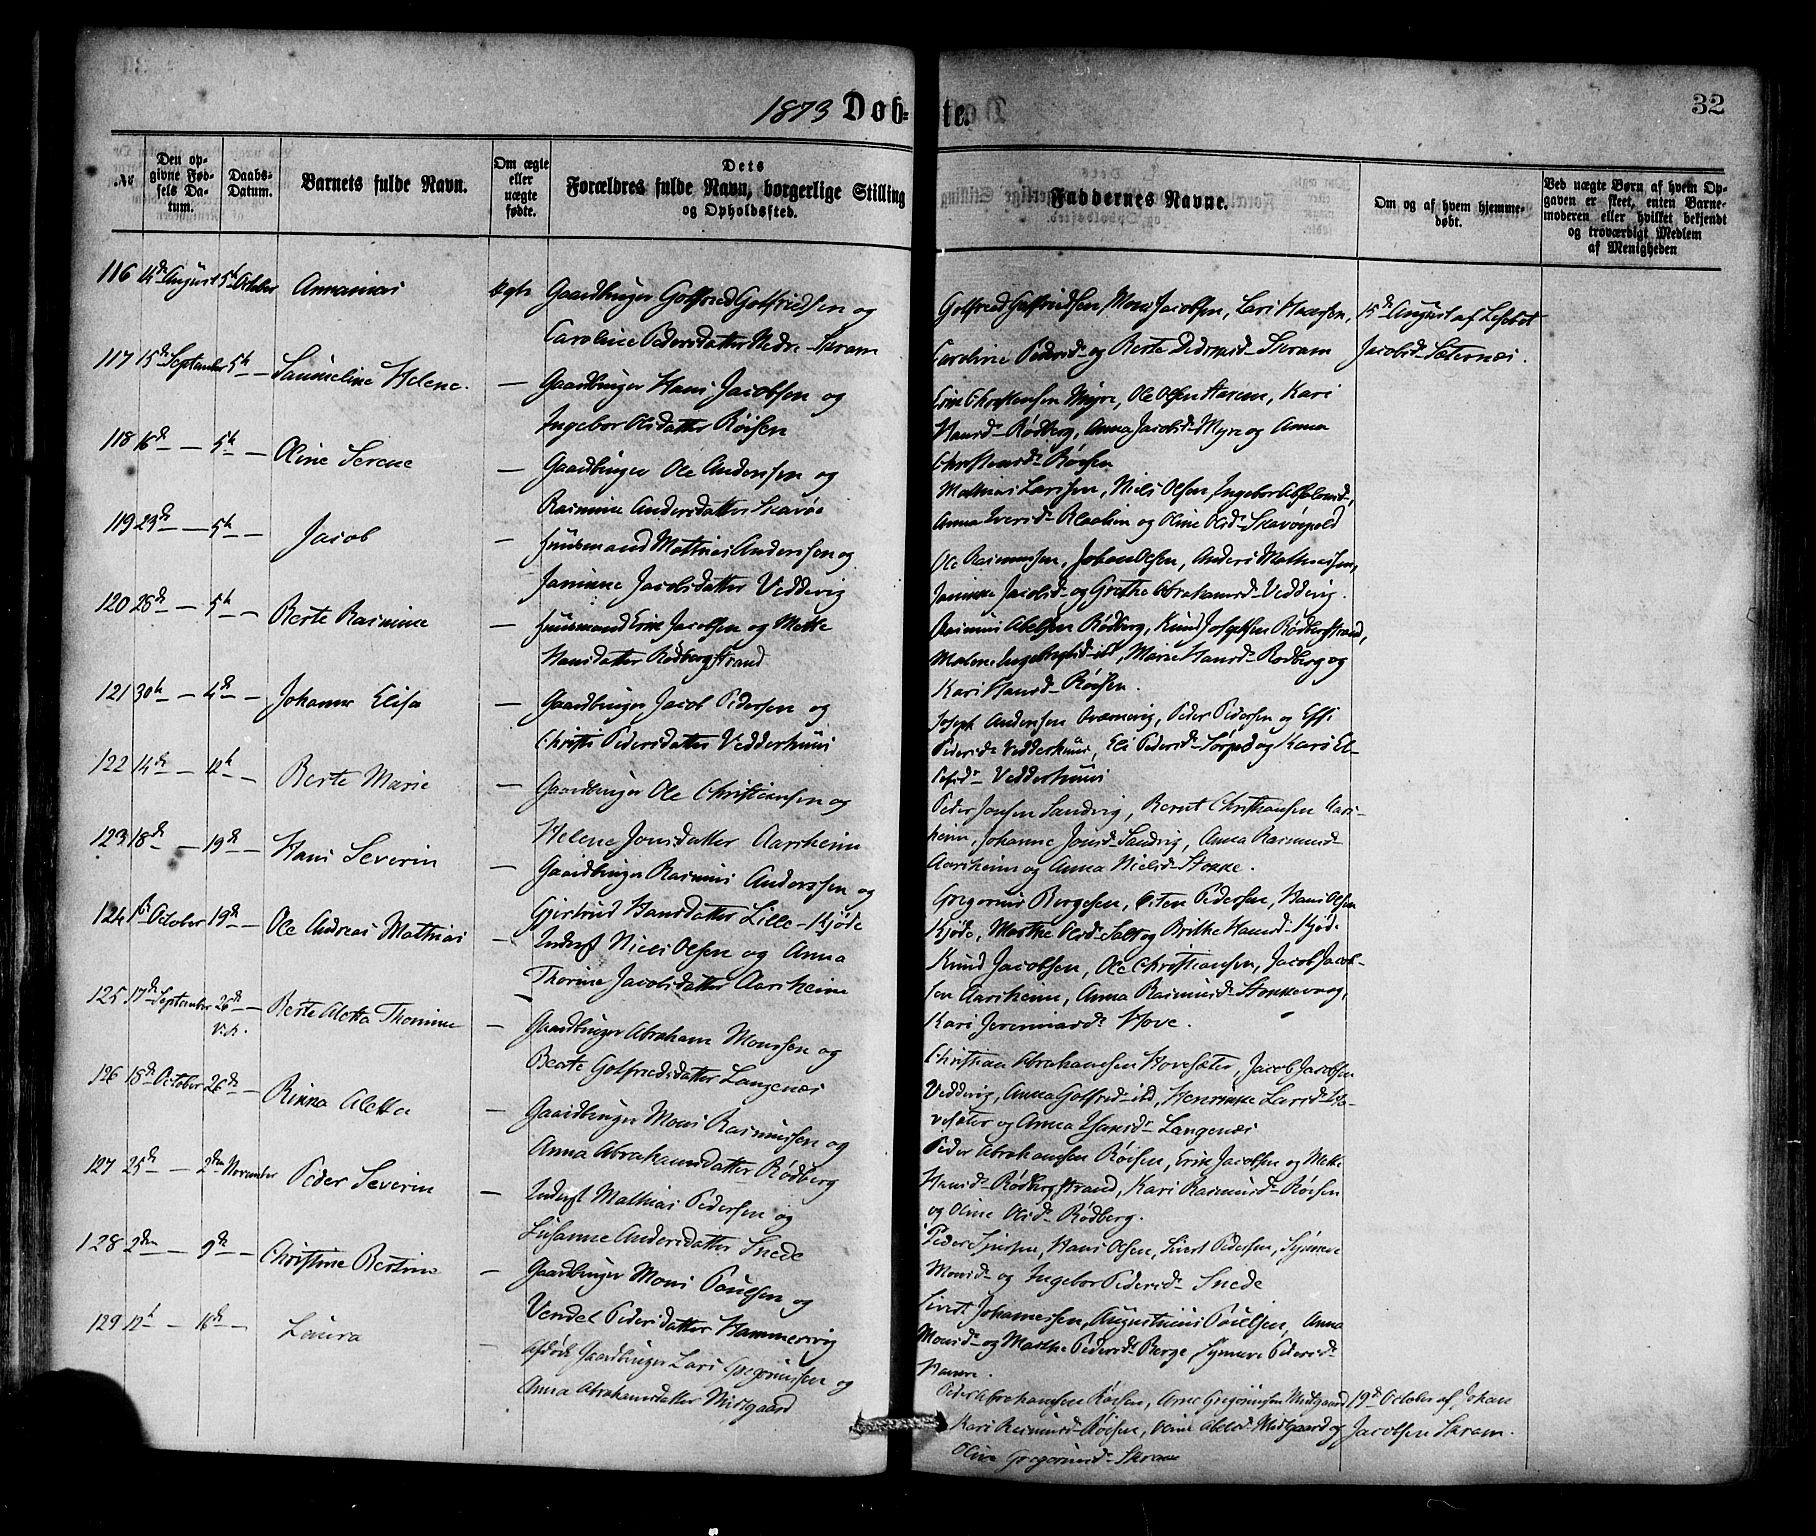 1873 Døb-te. 32
No
Den opgivne Fødsels Datum.
Daabs-Datum.
Barnets fulde Navn.
Om ægte eller uægte fødte.
Dets Forældres fulde Navn, borgerlige Stilling og Opholdssted.
Faddernes Navne.
Om og af hvem hjemmedøbt.
Ved uægte Børn af hvem Opgaven er skeet, enten Barnemoderen eller hvilket bekjendt og troværdigt Medlem af Menigheden
116 14de August 5te October Annanias ægte Gaardbruger Golfried Golfriedsen og
Caroline Pedersdatter Nedre-Skram
Golfried Golfriedsen, Mons Jacobsen, Lars Hansen,
Caroline Pedersd. og Berte Pedersd. Skram
15de August af Lisebet
Jacobsd. Sæternæs.
117 15de September 5te — Samueline Helene. — Gaardbruger Hans Jacobsen og
Ingebor Olsdatter Røisen
Erik Christensen Myre, Ole Olsen Harem, Kari
Hansd. Rødberg, Anna Jacobsd. Myre og Anna
Christensd. Røisen
118 16de — 5te — Oline Serene — Gaardbruger Ole Anderssen og
Rasmine Andersdatter Skavøe
Mathias Larssen, Niels Olsen, Ingebor Absalonsd.,
Anna Iversd. Blaalim og Oline Olsd. Skavøepold
119 23de — 5te — Jacob — Huusmand Mathias Anderssen og
Janinne Jacobsdatter Veddevig
Ole Rasmussen, Johan Olsen, Anders Mathiassen,
Janinne Jacobsd. og Grethe Abrahamsd. Veddevig.
120 28de — 5te — Berte Rasmine — Huusmand Erik Jacobsen og Mette
Hansdatter Rødbergstrand
Rasmus Abelsen Rødberg, Knud Josephsen Rødbergstrand,
Malene Ingebrigtsd. ibd, Marie Hansd. Rødberg og
Kari Hansd. Røisen.
121 30te — 4de — Johanne Elisa — Gaardbruger Jacob Pedersen og
Christi Pedersdatter Vedderhuus
Joseph Andersen Qvamevig, Peder Pedersen og Effi
Pedersd. Vedderhuus, Eli Pedersd. Sorped og Kari El-
Vedderhuus
122 14de — 12te — Berte Marie — Gaardbruger Ole Christiansen og
Helene Jonsdatter Aarsheim
Peder Jonsen Sandvig, Bernt Christiansen Aars-
heim, Johanne Jonsd. Sandvig, Anna Rasmusd.
Aarsheim og Anna Nielsd. Stokke.
123 18de — 19de — Hans Severin — Gaardbruger Rasmus Anderssen og
Gjertrud Hansdatter Lille-Kjøde
Gregorius Børgesen, Sten Pedersen, Hans Olsen
Kjøde, Marthe Olsd. Salt og Brithe Hansd. Kjøde
124 1ste October 19de — Ole Andreas Mathias — Inderst Niels Olsen og Anna
Thorine Jacobsdatter Aarsheim
Knud Jacobsen, Ole Christiansen, Jacob Jacob-
sen Aarsheim, Anna Rasmusd. Stokkevaag,
Kari Jeremiasd. Hove.
125 17de September 26de — Berte Aletta Thomine — Gaardbruger Abraham Monssen og
Beate Golfriedsdatter Langenæs
Christian Abrahamsen Hovesæter, Jacob Jacobsen
Veddevig, Anna Golfrieds. ibd, Henrikke Larsd. Ho-
vesæter og Anna Hansd. Langenæs
126 18de October 26de — Rinna Aletta — Gaardbruger Mons Rasmussen og
Anna Abrahamsdatter Rødberg
Peder Abrahamsen Røisen, Erik Jacobsen og Mette
Hansd. Rødbergstrand, Kari Rasmusd. Røisen
og Oline Olsd. Rødberg.
127 25de — 2den November Peder Severin — Inderst Mathias Pedersen og
Susanne Andersdatter Snede
Peder Sjursen, Hans Olsen, Sivert Pedersen, Synneve
Monsd. og Ingebor Pedersd. Snede
128 2den — 9de — Christine Bertine — Gaardbruger Mons Poulsen og
Vendel Pedersdatter Hammersvig
Sivert Johannessen, Augustinus Poulsen, Anna
Monsd. og Marthe Pedersd. Berge, Synneve Pedersd.
129 12te — 16de — Laura — Afdøde Gaardbruger Lars Gregoriussen og
Anna Abrahamsdatter Midtgaard
Peder Abrahamsen Røisen, Arne Gregoriussen Midtgaard
Kari Rasmusd. Røisen, Oline Abelsd. Midtgaard og
Oline Gregoriusd. Skram
19de October af Johan
Jacobsen Skram.